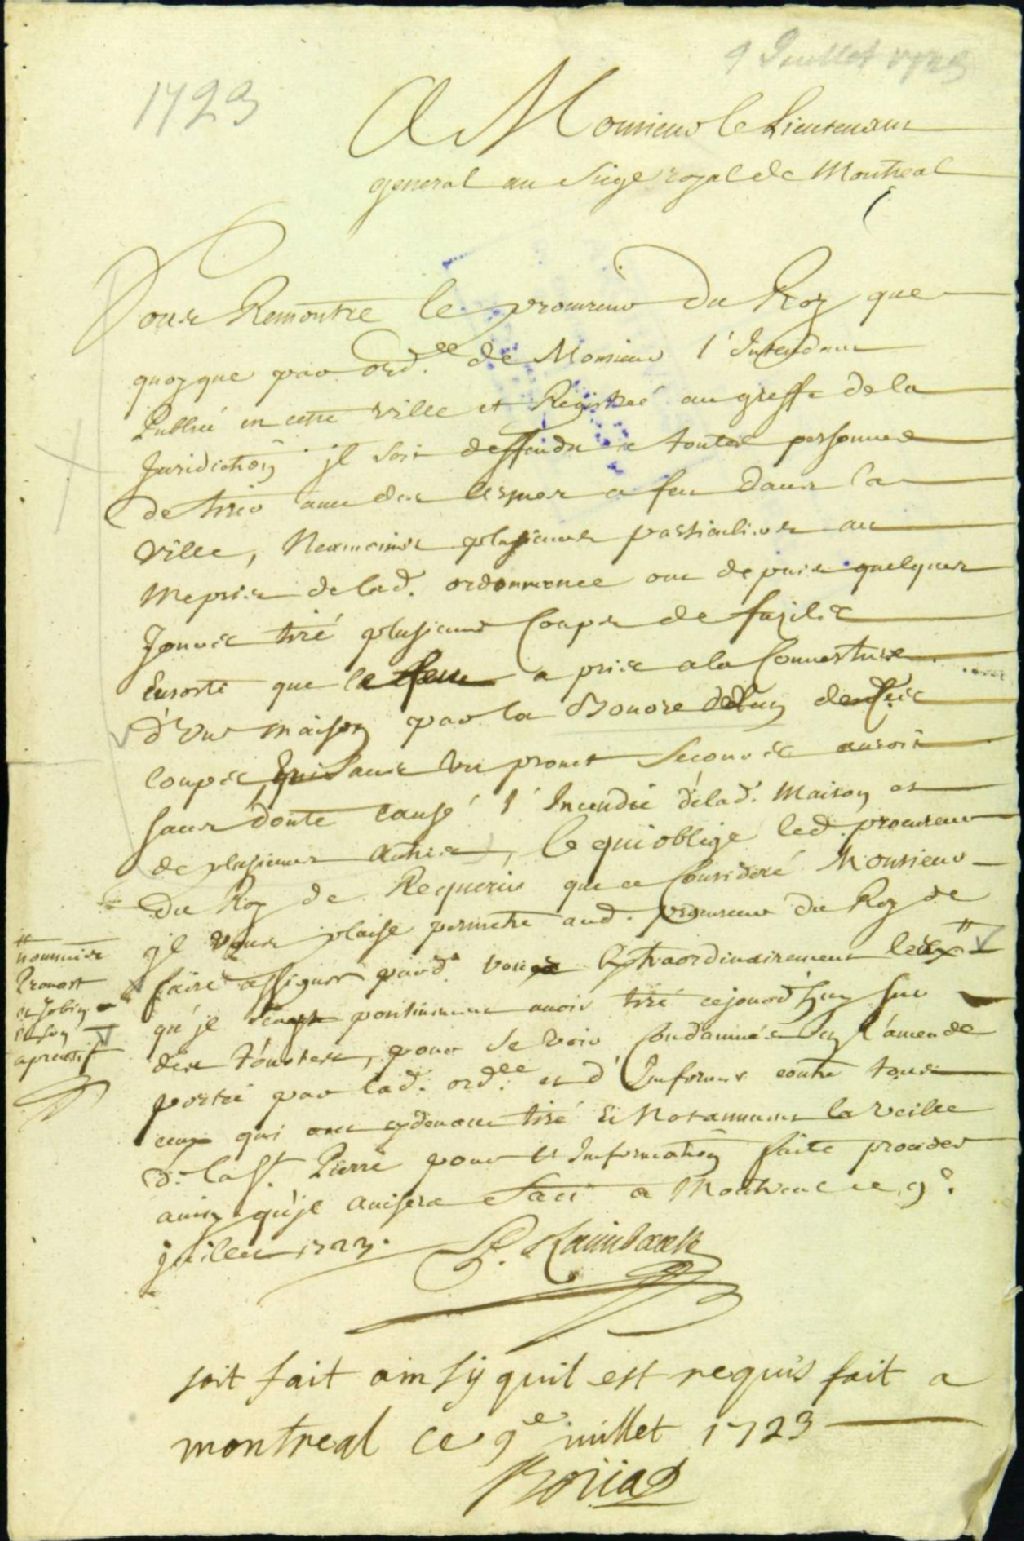 9 Juillet 1723
1723
A Monsieur le Lieutenant
general au Siege royal de Montreal
Vous Remontre le procureur du Roy que
quoyque par ord.ce de Monsieur l'Intendant
Publié en cette ville et Registré au greffe de la
Juridiction il soit deffendu a toutes personnes
de tirer aucunes armes a feu dans la
ville, Neanmoins plusieurs particuliers au
mepris de lad. ordonnance ont depuis quelques
Jours tiré plusieurs Coups de fusils
Ensorte que le feu a pris a la Couverture
d'Une maison par la Bourre de l'un desdits
coups, qui sans un prompt secours auroit
sans doute causé l'Incendie de lad. Maison et
de plusieurs autres, Ce qui oblige led. procureur
Du Roy de Requerir que ce Consideré Monsieur
il vous plaise permettre aud. procureur du Roy de
faire assigner pard. vous Extraordinairement les
nommés
Prevost
et Jobin
son
aprentif
qu'il pour avoir tiré cejourd'huy sur
des Tourtes, pour se voir Condamner En l'amende
portée par lad. ord.ce et d'Informer contre tous
ceux qui ont cydevant tiré Et Notamment la veille
de la St. Pierre pour l'Information faite proceder
ainsy qu'il avisera fait a Montreal ce 9e.
juillet 1723. Raimbault
soit fait ainsy quil est requis fait a
montreal ce 9e juillet 1723